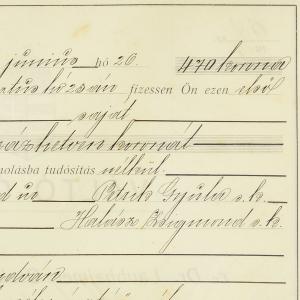 junius hó 20. 470 korona
házán fizessen Ön ezen első
saját
száz hetven koronát
molásba tudósítás nélkül.
Petrik Gyula s. k.
Halász Zsigmond s. k.